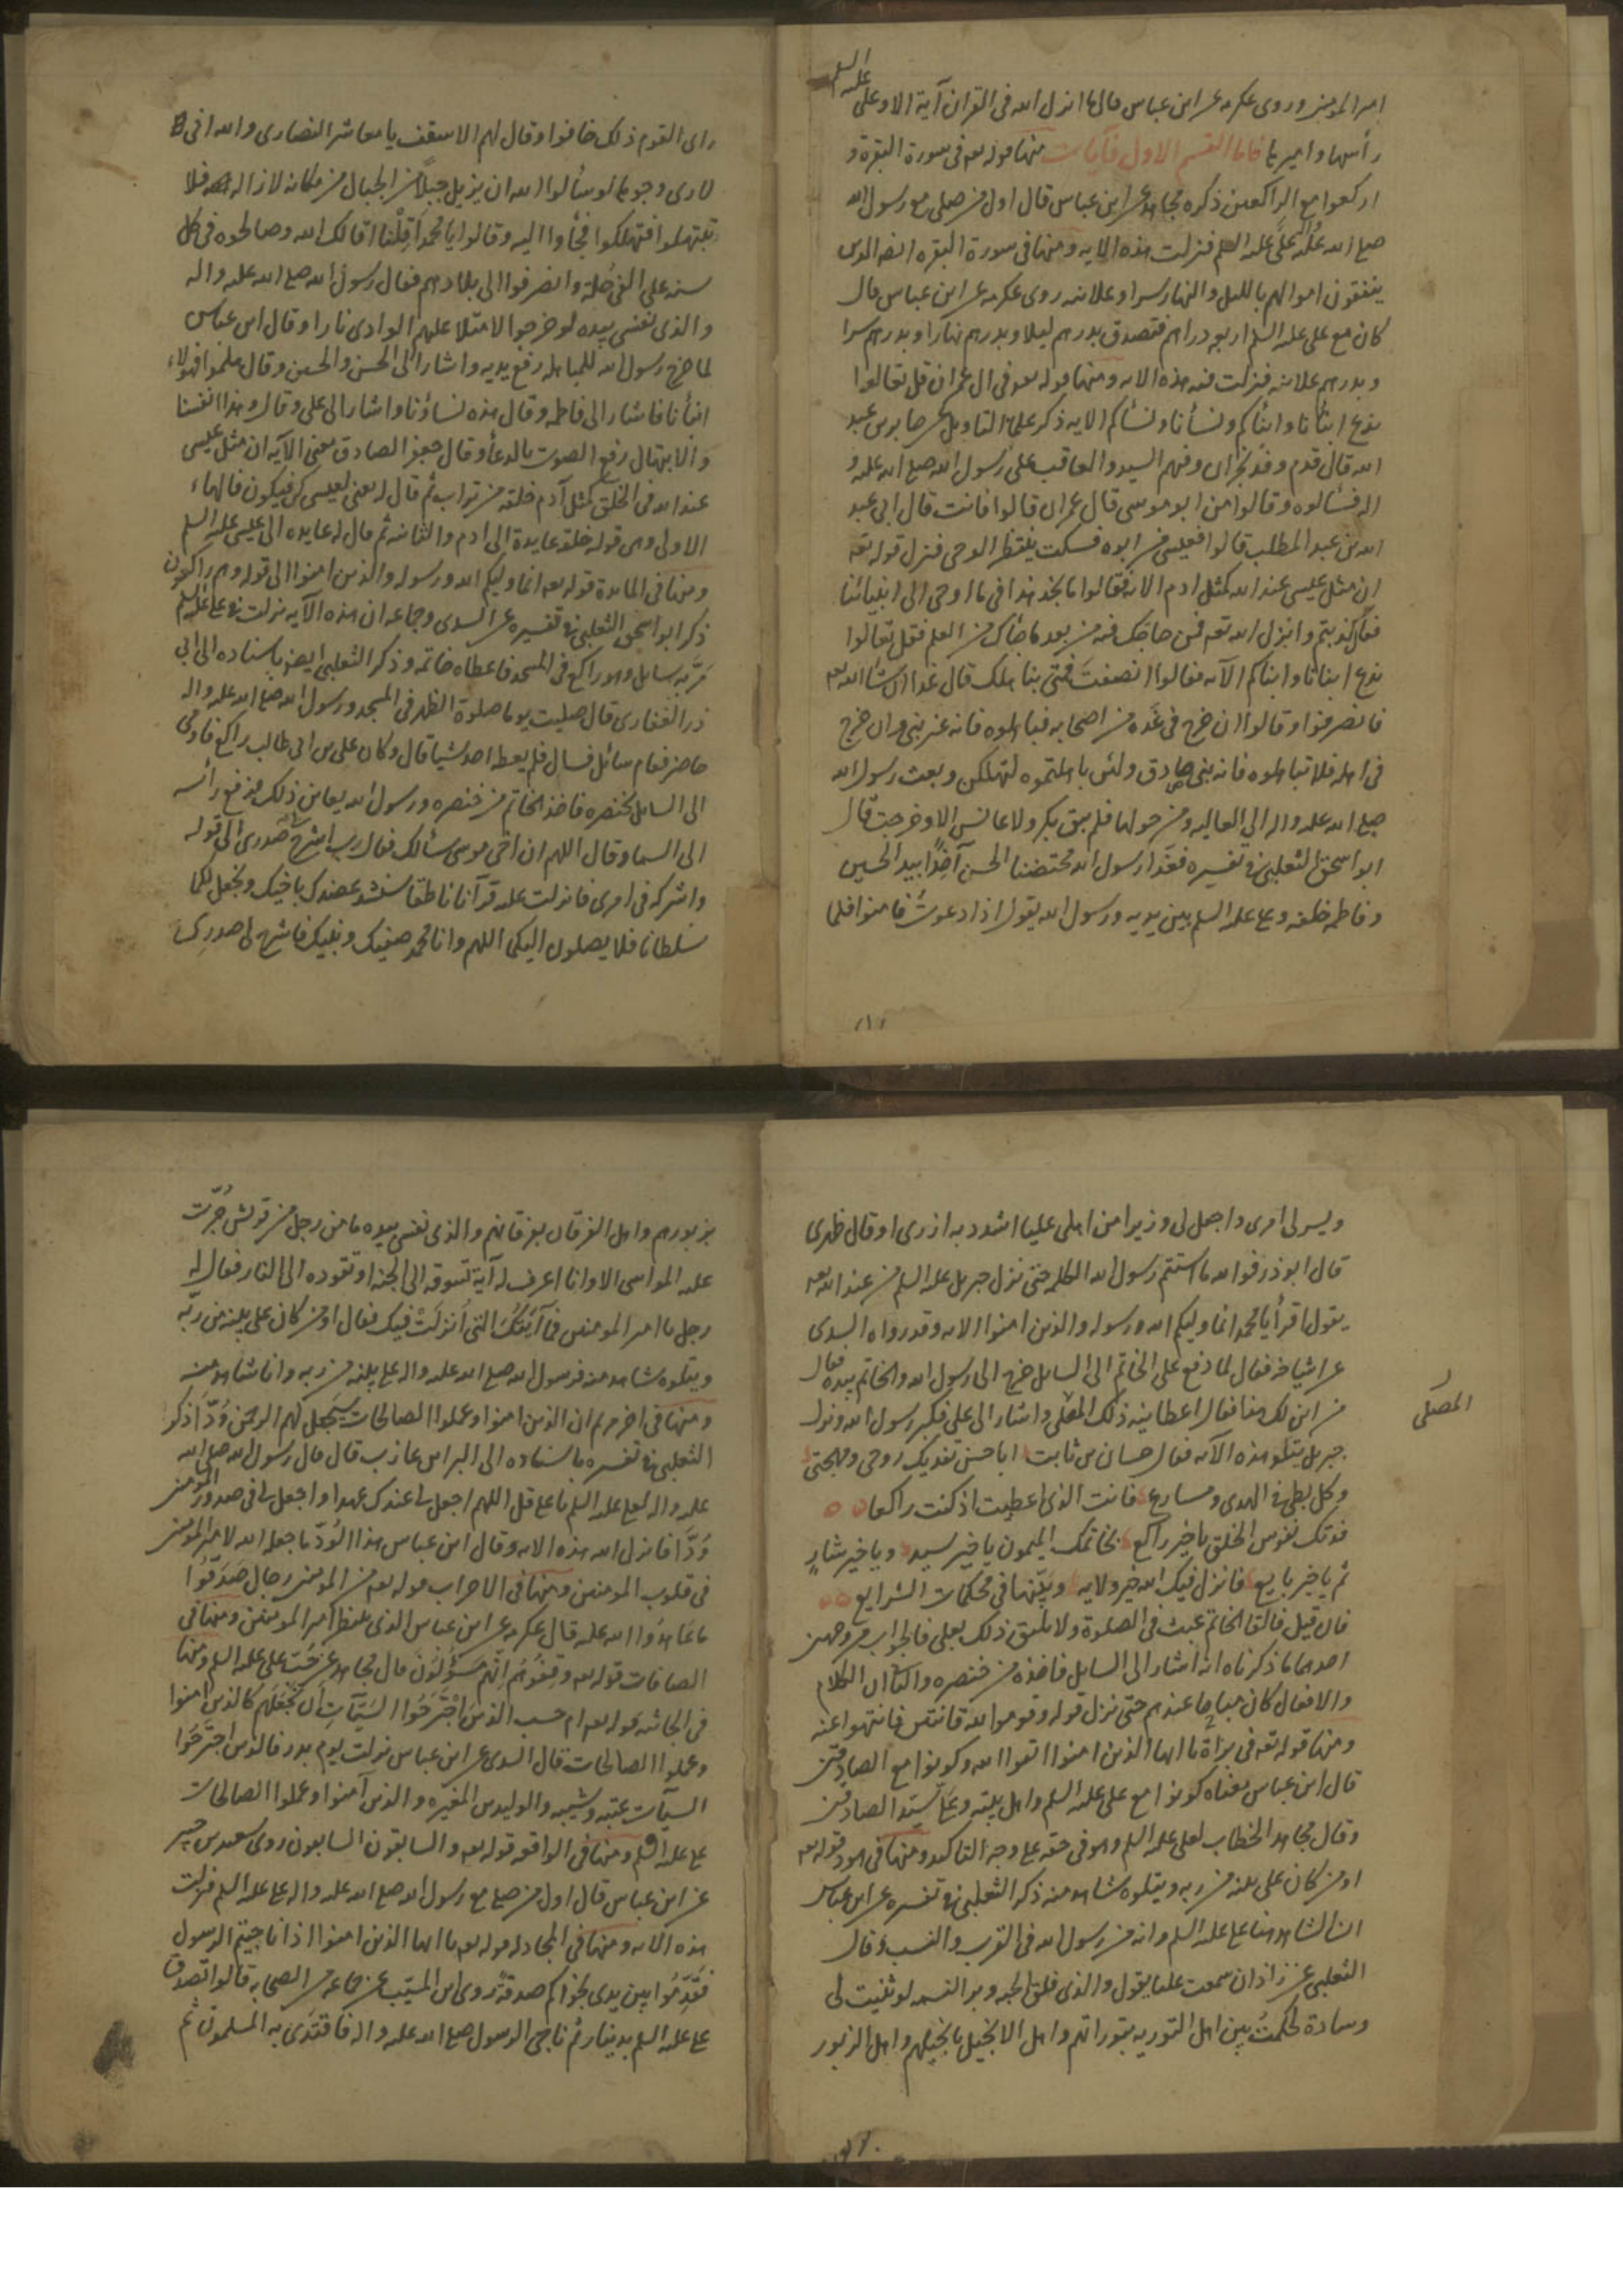 امير المؤمنين وروى عكرمه عن ابن عباس قال ما انزل الله فى القران آية الا وعلى عليه السلم
رأسها واميرها فاما القسم الاول فآيات منها قوله تعه فى سورة البقرة و
اركعوا مع الراكعين ذكره مجاهد عن ابن عباس قال اول من صلى مع رسول الله
صلى الله عليه على عليه السلم فنزلت هذه الايه ومنها فى سورة البقره ايضا الذين
ينفقون اموالهم بالليل والنهار سرا وعلانيه روى عكرمه عن ابن عباس قال
كان مع على عليه السلم اربعه دراهم فتصدق بدرهم ليلا وبدرهم نهارا وبدرهم سرا
وبدرهم علانيه فنزلت فيه هذه الايه ومنها قوله تعه فى ال عمران قل تعالوا
ندع ابنأنا وابنأكم ونسأنا ونسأكم الايه ذكر علمأ التاويل عن جابر بن عبد
الله قال قدم وفد نجران وفيهم السيد والعاقب على رسول الله صلى الله عليه و
اله فسألوه وقالوا من ابو موسى قال عمران قالوا فانت قال ابى عبد
الله بن عبد المطلب قالوا فعيسى من ابوه فسكت ينتظر الوحى فنزل قوله تعه
ان مثل عيسى عند الله كمثل ادم الايه فقالوا ما نجد هذا فى ما اوحى الى انبيائنا
فقال كذبتم وانزل الله تعه فمن حاجك فيه من بعد ما جأك من العلم فقل تعالوا
ندع ابنائنا وابنأكم الآيه فقالوا انصفت فمتى نباهلك قال غدا ان شأ الله تعه
فانصرفوا وقالوا ان خرج فى عدة من اصحابه فباهلوه فانه غير نبى وان خرج
فى اهله فلا تباهلوه فانه نبى صادق ولئن باهلتموه لتهلكن وبعث رسول الله
صلى الله عليه واله الى اهل العاليه ومن حولها فلم يبق بكر ولا عانس الا وخرجت قال
ابو اسحق الثعلبى فى تفسيره فغدا رسول الله محتضنا الحسن آخذا بيد الحسين
وفاطمه خلفه وعلى عليه السلم بين يديه ورسول الله يقول اذا دعوت فامنوا فلما
راى القوم ذلك خافوا وقال لهم الاسقف يا معاشر النصارى والله انى
لارى وجوها لو سألوا الله ان يزيل جبلا من الجبال من مكانه لازاله فلا
تبتهلوا فتهلكوا فجأوا اليه وقالوا يا محمد اقلنا اقالك الله وصالحوه فى كل
سنه على الفى حلة وانصرفوا الى بلادهم فقال رسول الله صلى الله عليه واله
والذى نفسى بيده لو خرجوا لامتلا عليهم الوادى نارا وقال ابن عباس
لما خرج رسول الله للمباهله رفع يديه واشار الى الحسن والحسين وقال هلموا فهولاء
ابنأنا فاشار الى فاطمه وقال هذه نساؤنا واشار الى على وقال وهذا انفسنا
والابتهال رفع الصوت بالدعأ وقال جعفر الصادق معنى الآيه ان مثل عيسى
عند الله فى الخلق كمثل آدم خلقه من تراب ثم قال له يعنى لعيسى كن فيكون فالهاء
الاولى وهى قوله خلقه عايدة الى ادم والثانيه ثم قال له عايده الى عيسى عليه السلم
ومنها فى المائدة قوله تعه انما وليكم الله ورسوله والذين امنوا الى قوله وهم راكعون
ذكر ابو اسحق الثعلبى فى تفسيره عن السدى وجماعه ان هذه الآيه نزلت فى على عليه السلم
مر به سايل وهو راكع فى المسجد فاعطاه خاتمه وذكر الثعلبى ايضا باسناده الى ابى
ذر الغفارى قال صليت يوما صلوة الظهر فى المسجد ورسول الله صلى الله عليه واله
حاضر فقام سائل فسال فلم يعطه احد شيا قال وكان على بن ابى طالب راكع فاومى
الى السايل بخنصره فاخذ الخاتم من خنصره ورسول الله يعاين ذلك فرفع رأسه
الى السما وقال اللهم ان اخى موسى سألك فقال رب اشرح لى صدرى الى قوله
واشركه فى امرى فانزلت عليه قرآنا ناطقا سنشد عضدك باخيك ونجعل لكما
سلطانا فلا يصلون اليكما اللهم وانا محمد صفيك ونبيك فاشرح لى صدرى
ويسر لى امرى واجعل لى وزيرا من اهلى عليا اشدد به ازرى او قال ظهرى
قال ابو ذر فوالله ما استتم رسول الله الكلمه حتى نزل جبريل عليه السلم من عند الله تعه
يقول اقرأ يا محمد انما وليكم الله ورسوله والذين امنوا الايه وقد رواه السدى
عن اشياخه فقال لما دفع على الخاتم الى السايل خرج الى رسول الله والخاتم بيده فقال
من اين لك هذا فقال اعطانيه ذلك المصلى واشار الى على فكبر رسول الله ونزل
المصلى
جبريل يتلو هذه الآيه فقال حسان بن ثابت ابا حسن تفديك روحى ومهجتى
وكل بطى فى الهدى ومسارع فانت الذى اعطيت اذ كنت راكعا
فدتك نفوس الخلق يا خير راكع بخاتمك الميمون يا خير سيد ويا خير شارٍ
ثم يا خير بايع فانزل فيك الله خير ولايه وبينها فى محكمات الشرايع
فان قيل فالقا الخاتم عبث فى الصلوة ولا يليق ذلك بعلى فالجواب من وجهين
احدهما ما ذكرناه انه اشار الى السايل فاخذه من خنصره والثانى ان الكلام
والافعال كان مباحا عندهم حتى نزل قوله وقوموا لله قانتين فانتهوا عنه
ومنها قوله تعه فى برأة يا ايها الذين امنوا اتقوا الله وكونوا مع الصادقين
قال ابن عباس معناه كونوا مع على عليه السلم واهل بيته وعلى سيد الصادقين
وقال مجاهد الخطاب لعلى عليه السلم وهو فى حقه على وجه التاكيد ومنها فى هود قوله تعه
او من كان على بينه من ربه ويتلوه شاهد منه ذكر الثعلبى فى تفسيره عن ابن عباس
ان الشاهد هنا على عليه السلم وانه من رسول الله فى القرب والنسب وقال
الثعلبى عن زاذان سمعت عليا يقول والذى فلق الحبه وبرا النسمه لو ثنيت لى
وسادة لحكمت بين اهل التوريه بتوراتهم واهل الانجيل بانجيلهم واهل الزبور
بزبورهم واهل الفرقان بفرقانهم والذى نفسى بيده ما من رجل من قريش جرت
عليه المواسى الا وانا اعرف له آية تسوقه الى الجنه او تقوده الى النار فقال له
رجل يا امير المؤمنين فما آيتك التى انزلت فيك فقال او من كان على بينه من ربه
ويتلوه شاهد منه فرسول الله صلى الله عليه واله على بينه من ربه وانا شاهد منه
ومنها فى اخر مريم ان الذين امنوا وعملوا الصالحات سيجعل لهم الرحمن ودا ذكر
الثعلبى فى تفسيره باسناده الى البرا بن عازب قال قال رسول الله صلى الله
عليه واله لعلى عليه السلم يا على قل اللهم اجعل لى عندك عهدا واجعل لى فى صدور المؤمنين
ودا فانزل الله هذه الايه وقال ابن عباس هذا الود ما جعله الله لامير المؤمنين
فى قلوب المومنين ومنها فى الاحزاب قوله تعه من المؤمنين رجال صدقوا
ما عاهدوا الله عليه قال عكرمه عن ابن عباس الذى ينتظر امير المومنين ومنها فى
الصافات قوله تعه وقفوهم انهم مسؤلون قال مجاهد عن حب على عليه السلم ومنها
فى الجاثيه قوله تعه ام حسب الذين اجترحوا السيآت ان نجعلهم كالذين امنوا
وعملوا الصالحات قال السدى عن ابن عباس نزلت يوم بدر فالذين اجترحوا
السيآت عتبه وشيبه والوليد بن المغيره والذين آمنوا وعملوا الصالحات
على عليه السلم ومنها فى الواقعه قوله تعه والسابقون السابقون روى سعيد بن جبير
عن ابن عباس قال اول من صلى مع رسول الله صلى الله عليه واله على عليه السلم فنزلت
هذه الايه ومنها فى المجادله قوله تعه يا ايها الذين امنوا اذا ناجيتم الرسول
فقدموا بين يدى نجواكم صدقة روى ابن المسيب عن جماعه من الصحابه قالوا تصدق
على عليه السلم بدينار ثم ناجى الرسول صلى الله عليه واله فاقتدى به المسلمون ثم